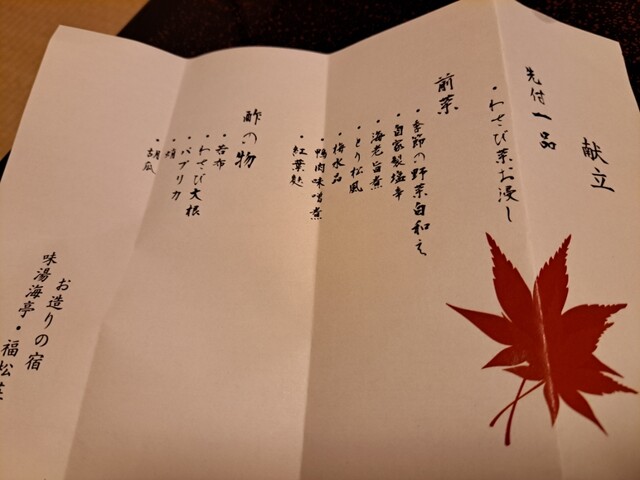 献立
先付一品
・わさび菜お浸し
前菜
・季節の野菜白和え
・自家製塩辛
・海老旨煮
・とり松風
・梅水晶
・鴨肉味噌煮
・紅葉麩
酢の物
・若布
・わさび大根
・パプリカ
・蛸
・胡瓜
お造りの宿
味湯海亭・福松荘